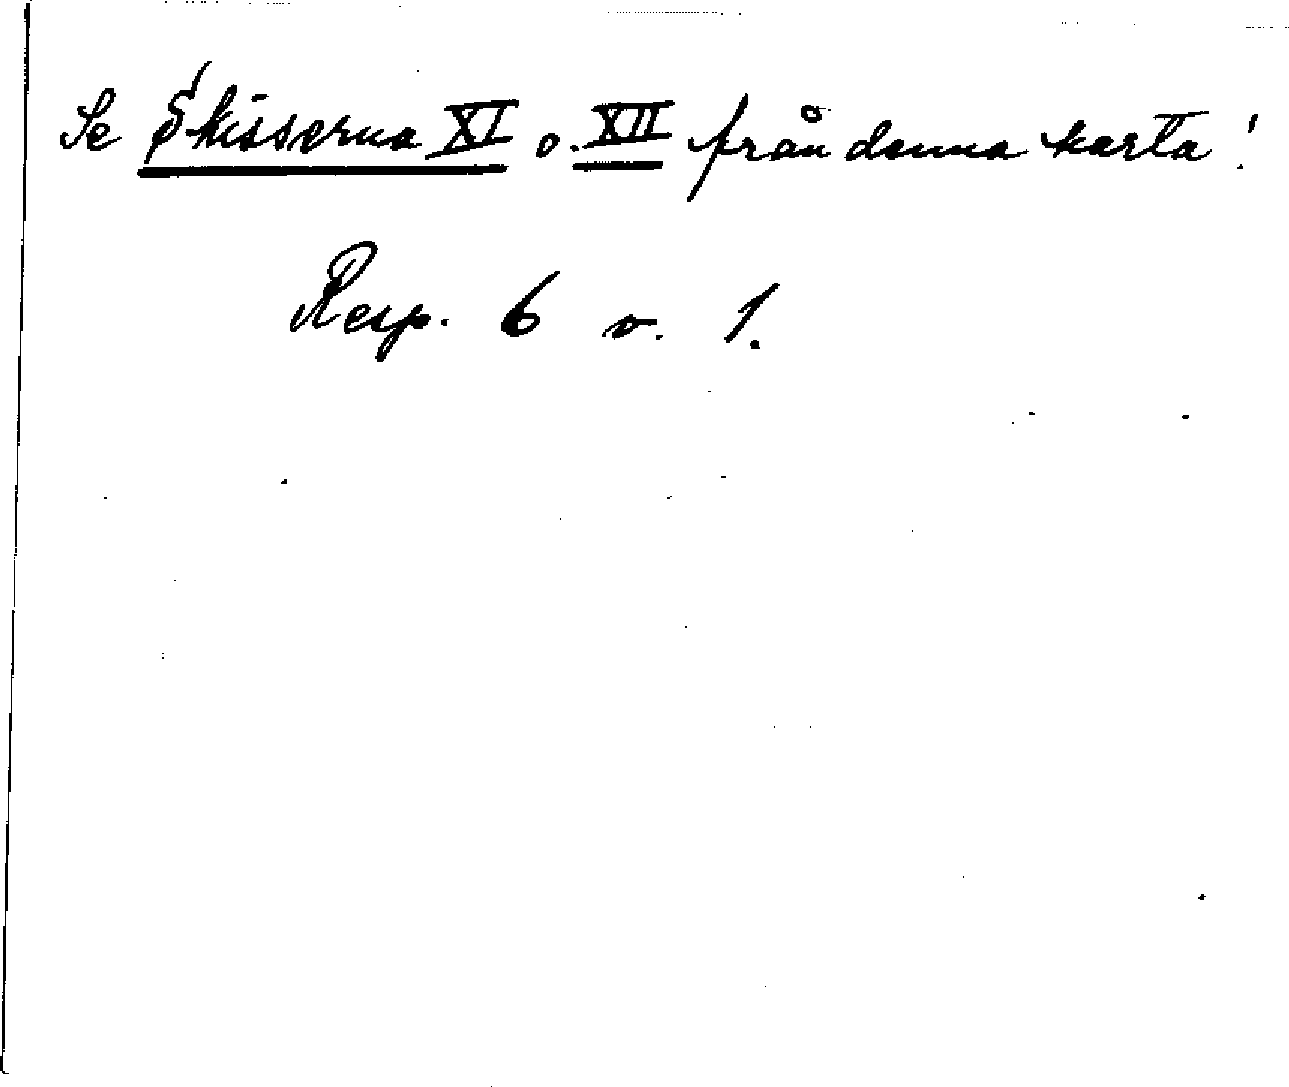 Se Skisserna XI o. XII från denna karta!
Resp. 6 o. 1.